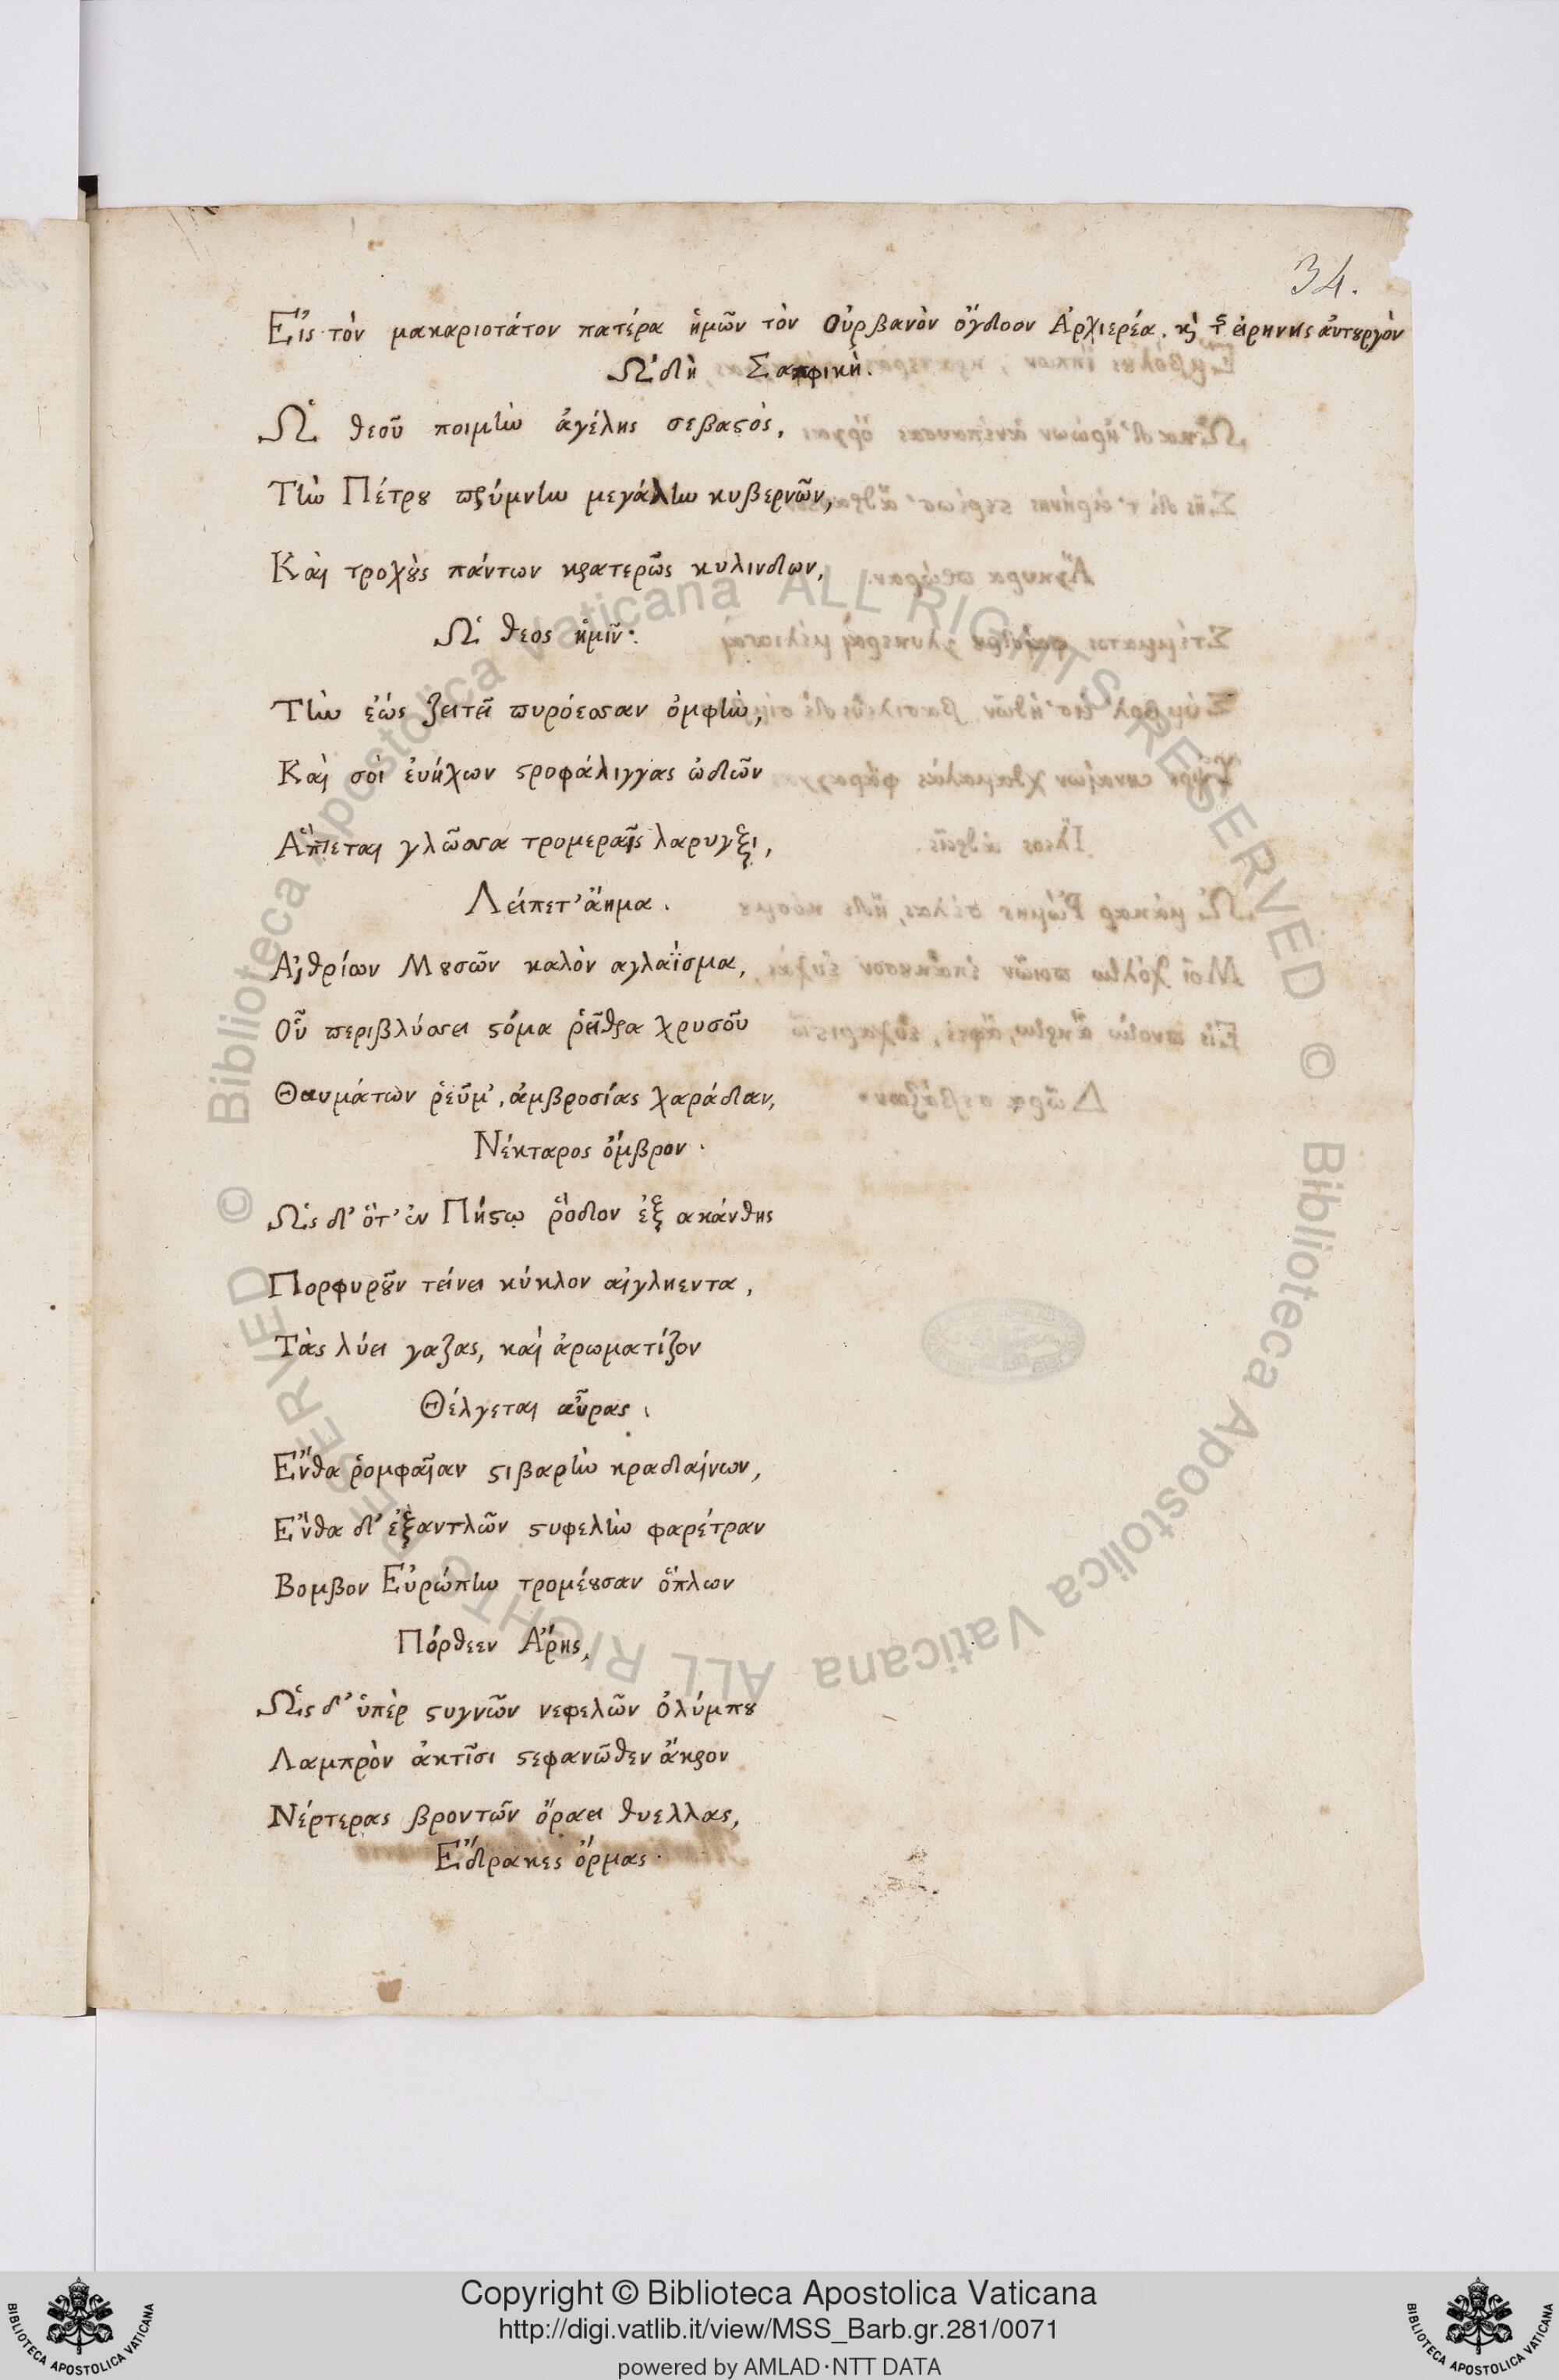 34.
Εἰς τὸν μακαριοτάτον πατέρα ἡμῶν τὸν Οὐρβανὸν ὄγδοον Ἀρχιερέα. κὶ τ͂ εἰρηνης ἀυτουργὸν
Ὠδὴ Σαπφικὴ.
Ὦ θεοῦ ποιμὴν ἀγέλης σεβαστὸς,
Τὴν Πέτρου πρύμνην μεγάλην κυβερνῶν,
Καὶ τροχοὺς πάντων κρατερῶς κυλινδων,
Ὦ θεος ἡμῖν·
Τὴν ἑώς ζειτεῖ πυρόεσσαν ὀμφὴν,
Καὶ σοὶ ἐυήχων στροφάλιγγας ὠδῶν
Ἅπτεται γλῶσσα τρομεραῖς λαρυγξι,
Λείπετ' ἄημα.
Αἰθρίων Μουσῶν καλὸν αγλαϊσμα,
Οὗ περιβλύσσει στόμα ῥεῖθρα χρυσοῦ
Θαυμάτων ῥεῦμ', ἀμβροσίας χαράδραν,
Νέκταρος ὄμβρον.
Ὡς δ' ὅτ' ἐν Πήστῳ ῥόδον ἐξ ακάνθης
Πορφυροῦν τείνει κύκλον αἰγληεντα,
Τὰς λύει γαζας, καὶ ἀρωματίζον
Θέλγεται αὖρας.
Ἔνθα ῥομφαῖαν στιβαρὴν κραδαίνων,
Ἔνθα δ' ἐξαντλῶν στυφελὴν φαρέτραν
Βομβον Εὐρώπην τρομέουσαν ὅπλων
Πόρθεεν Ἄρης,
Ὡς δ' ὑπὲρ στυγνῶν νεφελῶν ὀλύμπου
Λαμπρὸν ἀκτῖσι στεφανῶθεν ἄκρον
Νέρτερας βροντῶν ὅραει θυελλας,
Ἔδρακες ὅρμας.
Copyright © Biblioteca Apostolica Vaticana
http://digi.vatlib.it/view/MSS_Barb.gr.281/0071
powered by AMLAD·NTT DATA
BIBLIOTECA APOSTOLICA VATICANA
BIBLIOTECA APOSTOLICA VATICANA
© Biblioteca Apostolica Vaticana ALL RIGHTS RESERVED
© Biblioteca Apostolica Vaticana ALL RIGHTS RESERVED